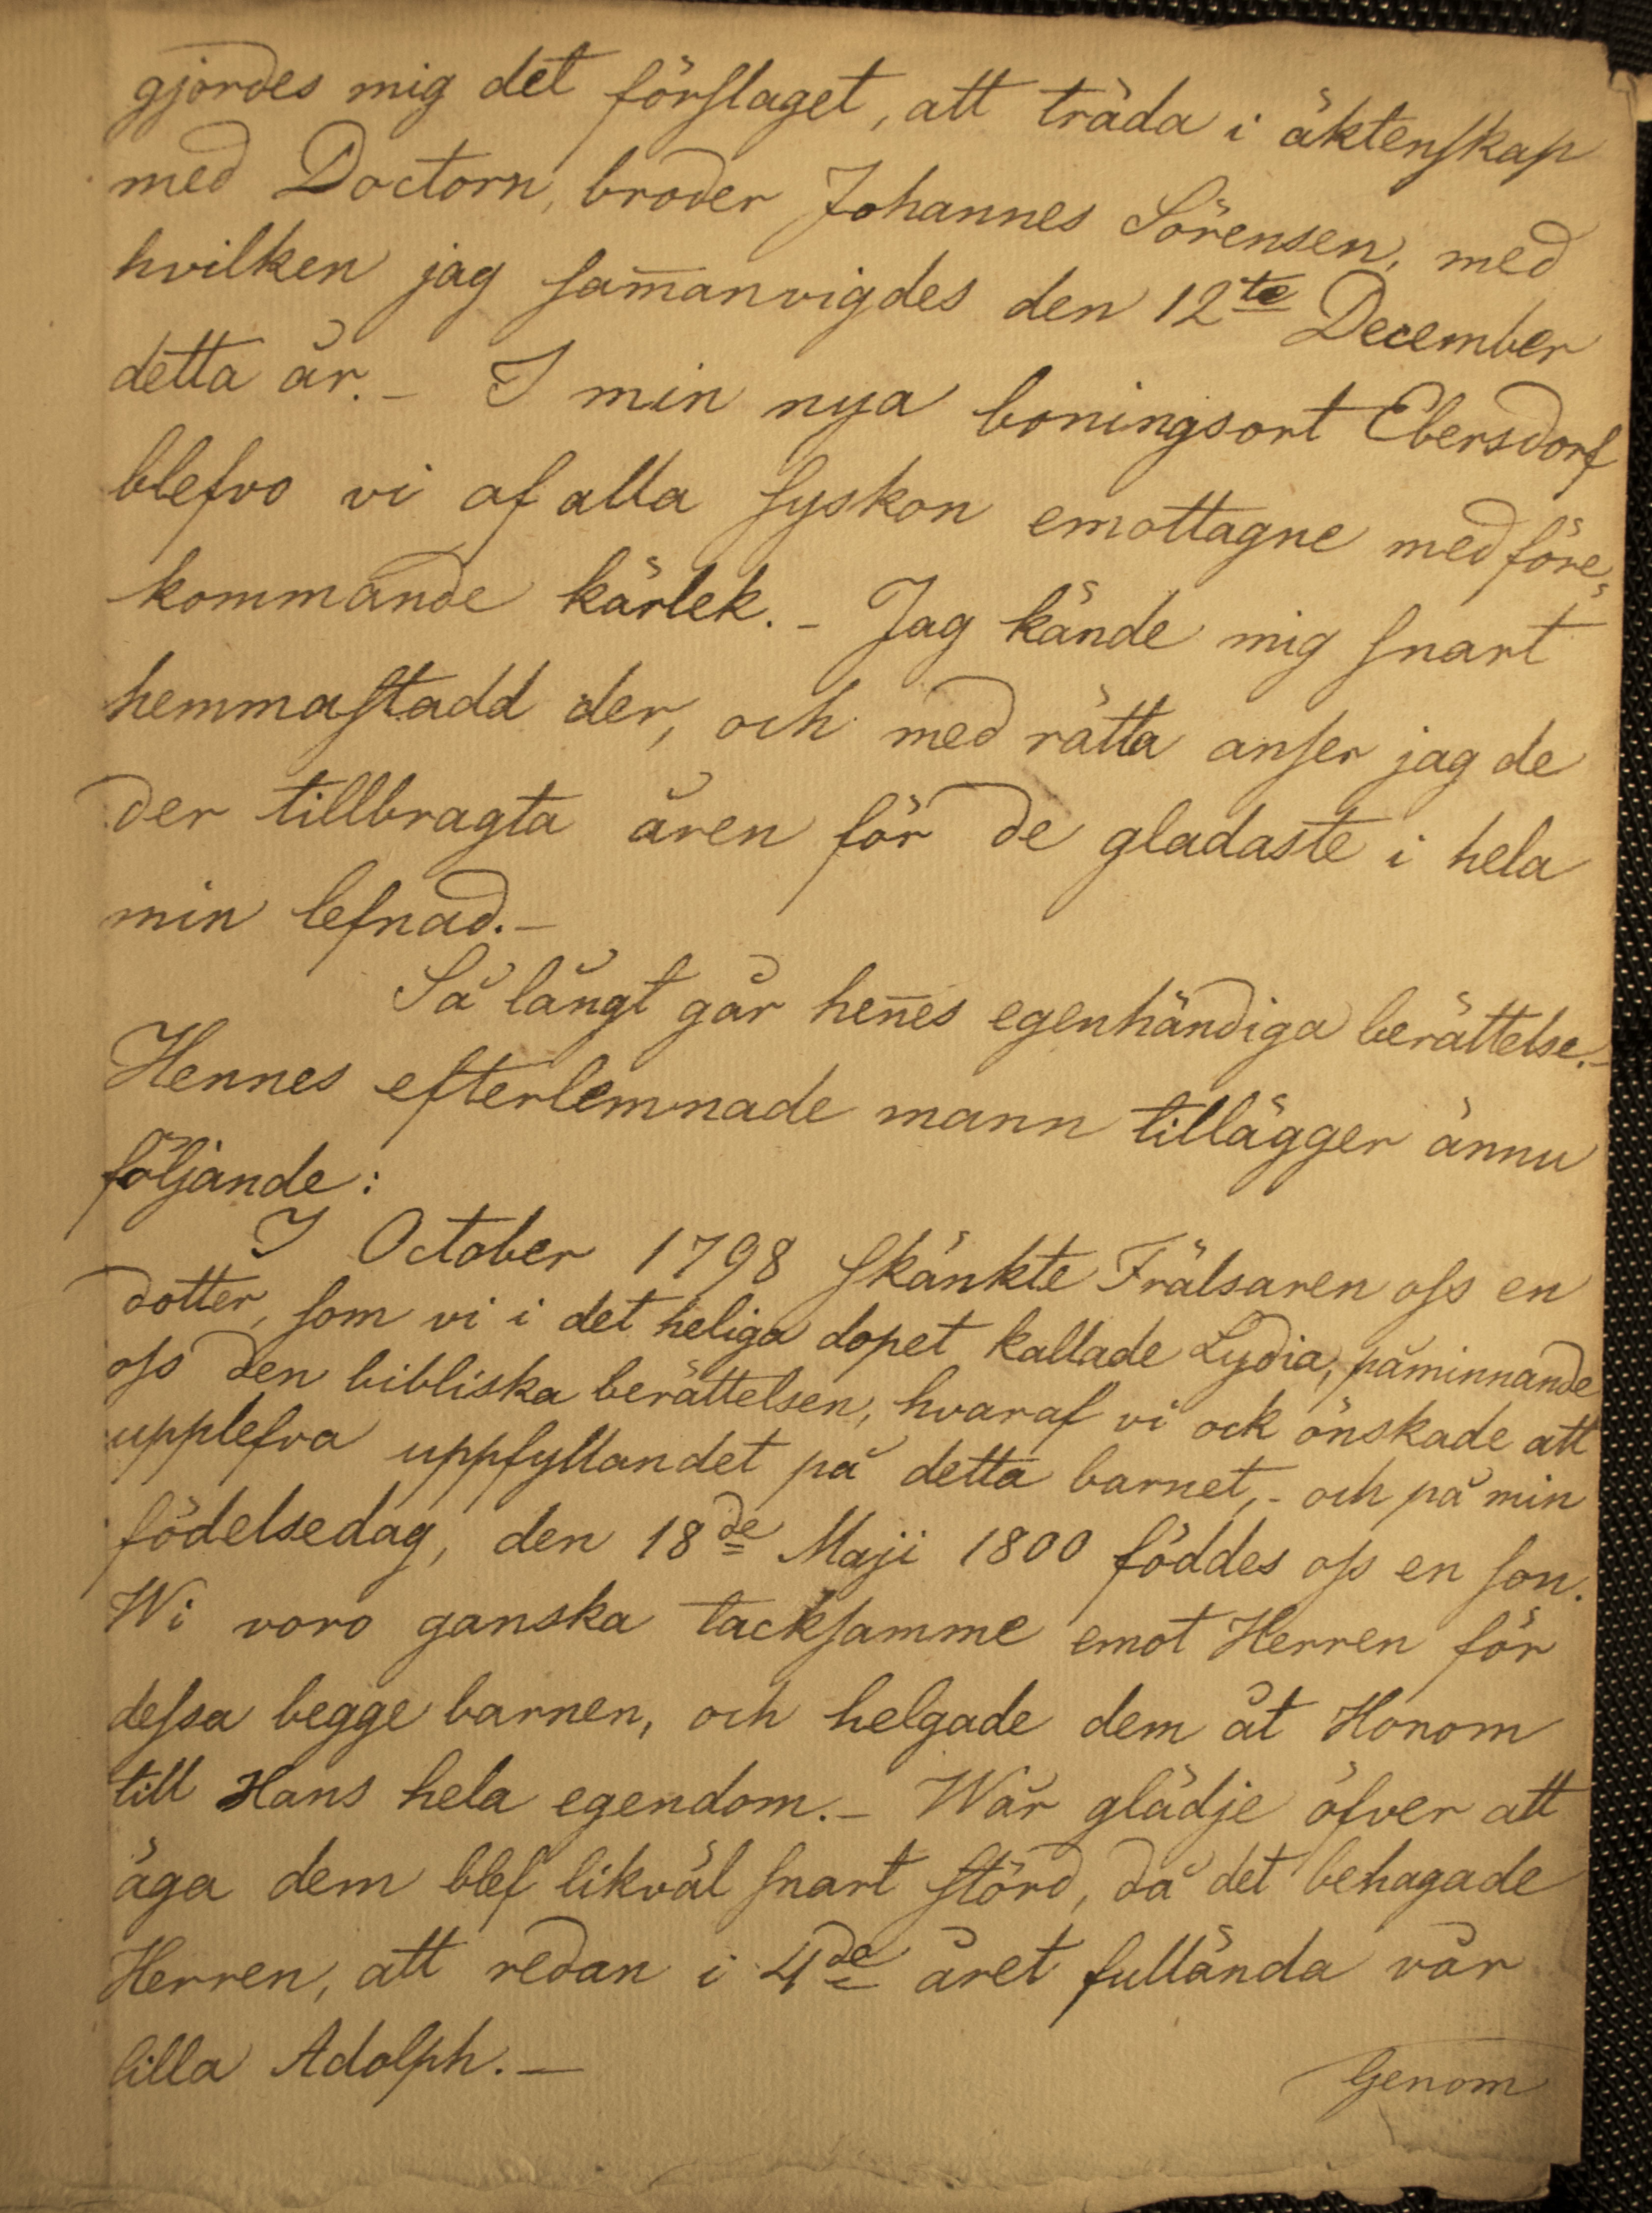 gjordes mig det förslaget, att träda i äktenskap
med Doctorn, broder Johannes Sörensen, med
hvilken jag sam̅anvigdes den 12te December
detta år. – I min nya boningsort Ebersdorf
blefvo vi af alla syskon emottagne med före-
kommande kärlek. – Jag kände mig snart
hemmastadd der, och med rätta anser jag de
der tillbragta åren för de gladaste i hela
min lefnad. –
Så långt går hen̅es egenhändiga berättelse. –
Hennes efterlemnade mann tillägger ännu
följande:
I October 1798 skänkte Frälsaren oss en
dotter, som vi i det heliga dopet kallade Lydia, påminnande
oss den bibliska berättelsen, hvaraf vi ock önskade att
upplefva uppfyllandet på detta barnet, – och på min
födelsedag, den 18de Maji 1800 föddes oss en son.
Wi voro ganska tacksamme emot Herren för
dessa begge barnen, och helgade dem åt Honom
till Hans hela egendom. – Wår glädje öfver att
äga dem blef likväl snart störd, då det behagade
Herren, att redan i 4de året fullända vår
lilla Adolph. –
Genom